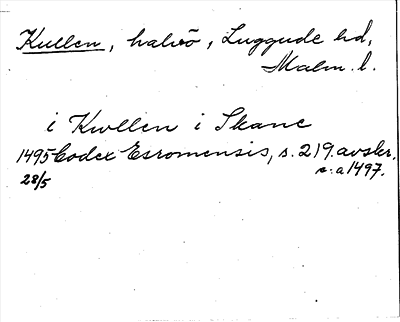 Kullen, halvö, Luggude hd,
Malm. l.
i Kwllen i Skane
1495 Codex Esromensis, s. 219. avskr.
28/5 c:a 1497.